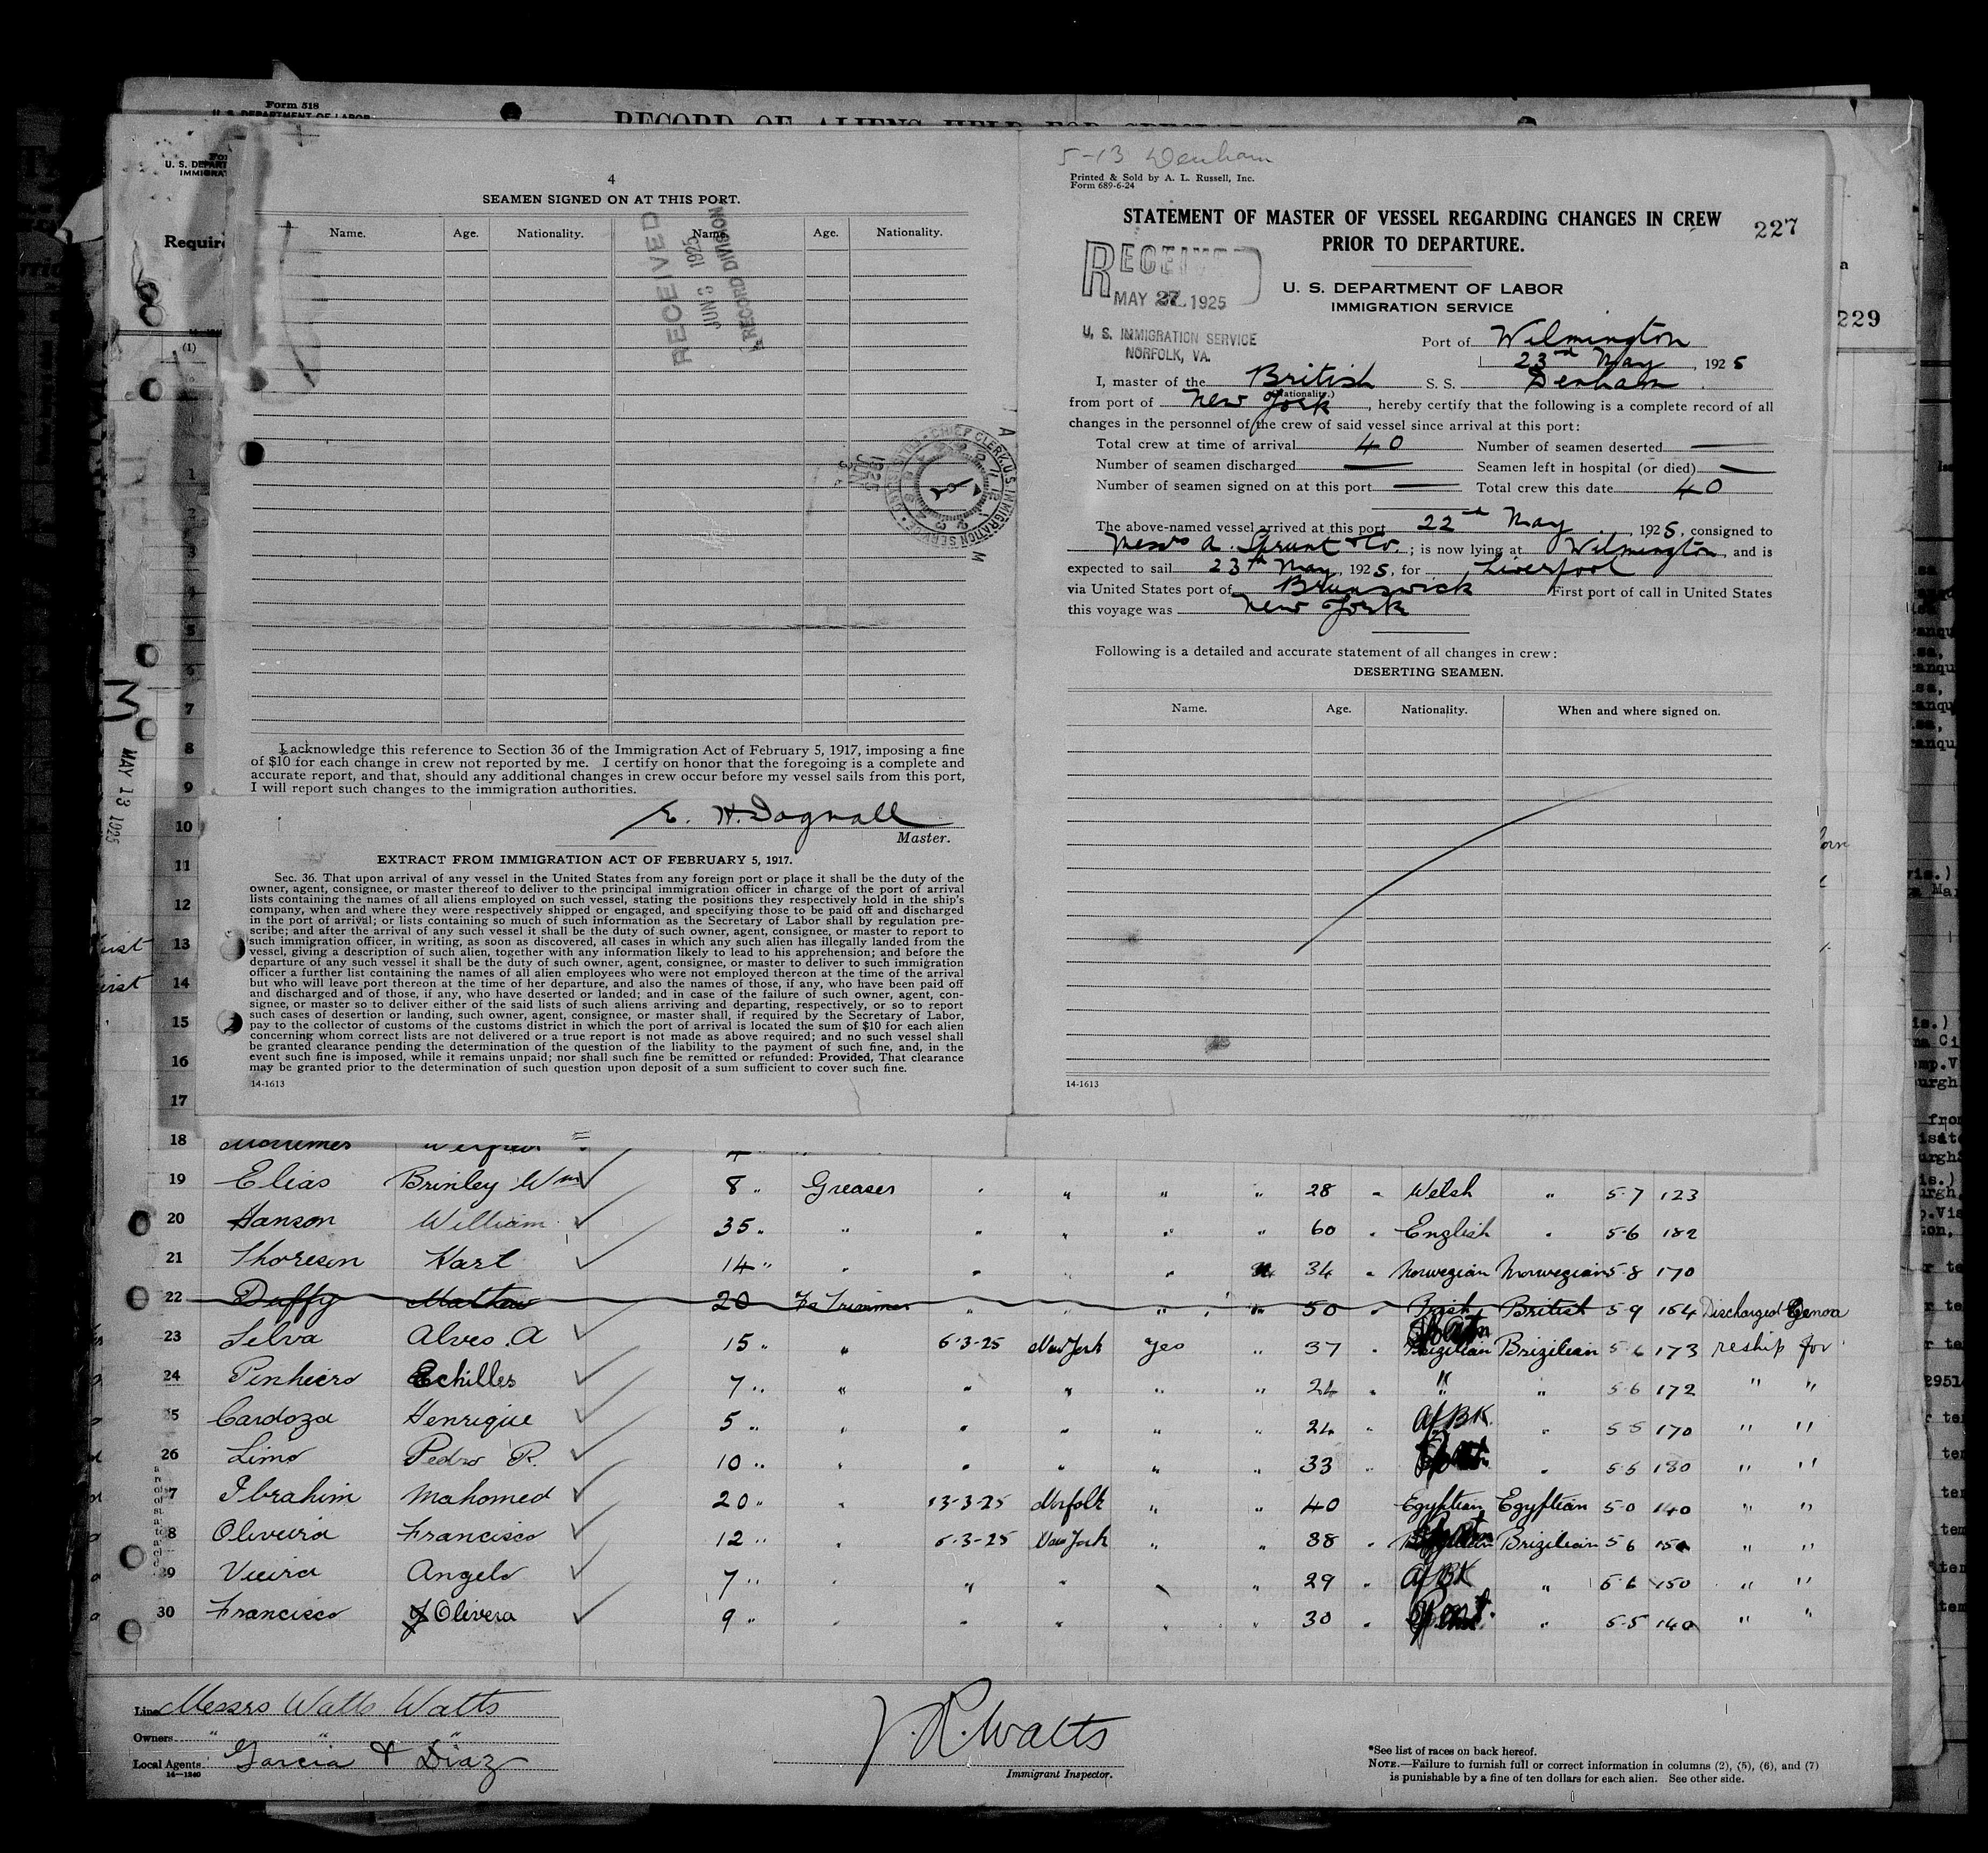 Form 518
U. S. DEPARTMENT OF LABOR
RECORD OF ALIENS HELD FOR SPECIAL
U. S. DEPART
IMMIGRA
Require
(1)
4
SEAMEN SIGNED ON AT THIS PORT.
Name. Age. Nationality. Name. Age. Nationality.
RECEIVED
JUN 3 1925
RECORD DIVISION
CHIEF CLERK, U. S. IMMIGRATION SERVICE
I acknowledge this reference to Section 36 of the Immigration Act of February 5, 1917, imposing a fine
of $10 for each change in crew not reported by me. I certify on honor that the foregoing is a complete and
accurate report, and that, should any additional changes in crew occur before my vessel sails from this port,
I will report such changes to the immigration authorities.
E. H. Dagnall
Master.
EXTRACT FROM IMMIGRATION ACT OF FEBRUARY 5, 1917.
Sec. 36. That upon arrival of any vessel in the United States from any foreign port or place it shall be the duty of the
owner, agent, consignee, or master thereof to deliver to the principal immigration officer in charge of the port of arrival
lists containing the names of all aliens employed on such vessel, stating the positions they respectively hold in the ship's
company, when and where they were respectively shipped or engaged, and specifying those to be paid off and discharged
in the port of arrival; or lists containing so much of such information as the Secretary of Labor shall by regulation pre-
scribe; and after the arrival of any such vessel it shall be the duty of such owner, agent, consignee, or master to report to
such immigration officer, in writing, as soon as discovered, all cases in which any such alien has illegally landed from the
vessel, giving a description of such alien, together with any information likely to lead to his apprehension; and before the
departure of any such vessel it shall be the duty of such owner, agent, consignee, or master to deliver to such immigration
officer a further list containing the names of all alien employees who were not employed thereon at the time of the arrival
but who will leave port thereon at the time of her departure, and also the names of those, if any, who have been paid off
and discharged and of those, if any, who have deserted or landed; and in case of the failure of such owner, agent, con-
signee, or master so to deliver either of the said lists of such aliens arriving and departing, respectively, or so to report
such cases of desertion or landing, such owner, agent, consignee, or master shall, if required by the Secretary of Labor,
pay to the collector of customs of the customs district in which the port of arrival is located the sum of $10 for each alien
concerning whom correct lists are not delivered or a true report is not made as above required; and no such vessel shall
be granted clearance pending the determination of the question of the liability to the payment of such fine, and, in the
event such fine is imposed, while it remains unpaid; nor shall such fine be remitted or refunded: Provided, That clearance
may be granted prior to the determination of such question upon deposit of a sum sufficient to cover such fine.
14-1613
5-13 Denham
Printed & Sold by A. L. Russell, Inc.
Form 689-6-24
STATEMENT OF MASTER OF VESSEL REGARDING CHANGES IN CREW
PRIOR TO DEPARTURE.
227
229
RECEIVED
MAY 27 1925
U. S. IMMIGRATION SERVICE
NORFOLK, VA.
U. S. DEPARTMENT OF LABOR
IMMIGRATION SERVICE
Port of Wilmington
23rd May, 1925
I, master of the British S. S. Denham
(Nationality.)
from port of New York, hereby certify that the following is a complete record of all
changes in the personnel of the crew of said vessel since arrival at this port:
Total crew at time of arrival 40 Number of seamen deserted —
Number of seamen discharged — Seamen left in hospital (or died) —
Number of seamen signed on at this port — Total crew this date 40
The above-named vessel arrived at this port 22nd May, 1925, consigned to
Messrs A. Sprunt & Co.; is now lying at Wilmington, and is
expected to sail 23rd May, 1925, for Liverpool
via United States port of Brunswick First port of call in United States
this voyage was New York
Following is a detailed and accurate statement of all changes in crew:
DESERTING SEAMEN.
Name. Age. Nationality. When and where signed on.
14-1613
MAY 13 1925
1
2
3
4
5
6
7
8
9
10
11
12
13
14
15
16
17
18
19 Elias Brinley Wm 8 " Greaser " " " " 28 " Welsh " 5-7 123
20 Hanson William 35 " " " " " " 60 " English " 5-6 182
21 Thoresen Karl 14 " " " " " 34 " Norwegian Norwegian 5-8 170
22 Duffy Mathew 20 Fr Trimmer " " " " 50 " Irish British 5-9 164 Discharged Genoa
23 Selva Alves. A 15 " " 6-3-25 New York Yes " 37 " Brizilian Brizilian 5-6 173 reship for
24 Pinheiro Echilles 7 " " " " " " 24 " " " 5-6 172 " "
25 Cardoza Henrique 5 " " " " " " 24 " Af BK " 5-5 170 " "
26 Lima Pedro R. 10 " " " " " " 33 " " 5-5 180 " "
7 Ibrahim Mahomed 20 " " 13-3-25 Norfolk " " 40 Egyptian Egyptian 5-0 140 " "
8 Oliveira Francisco 12 " " 6-3-25 New York " " 38 " Brizilian 5-6 150 " "
29 Vieira Angelo 7 " " " " " " 29 " Af BK " 5-6 150 " "
30 Francisco J Olivera 9 " " " " " " 30 " " 5-5 140 " "
Line Messrs Watts Watts
Owners " " "
Local Agents Garcia & Diaz
14—1240
J. R. Watts
Immigrant Inspector.
*See list of races on back hereof.
NOTE.—Failure to furnish full or correct information in columns (2), (5), (6), and (7)
is punishable by a fine of ten dollars for each alien. See other side.